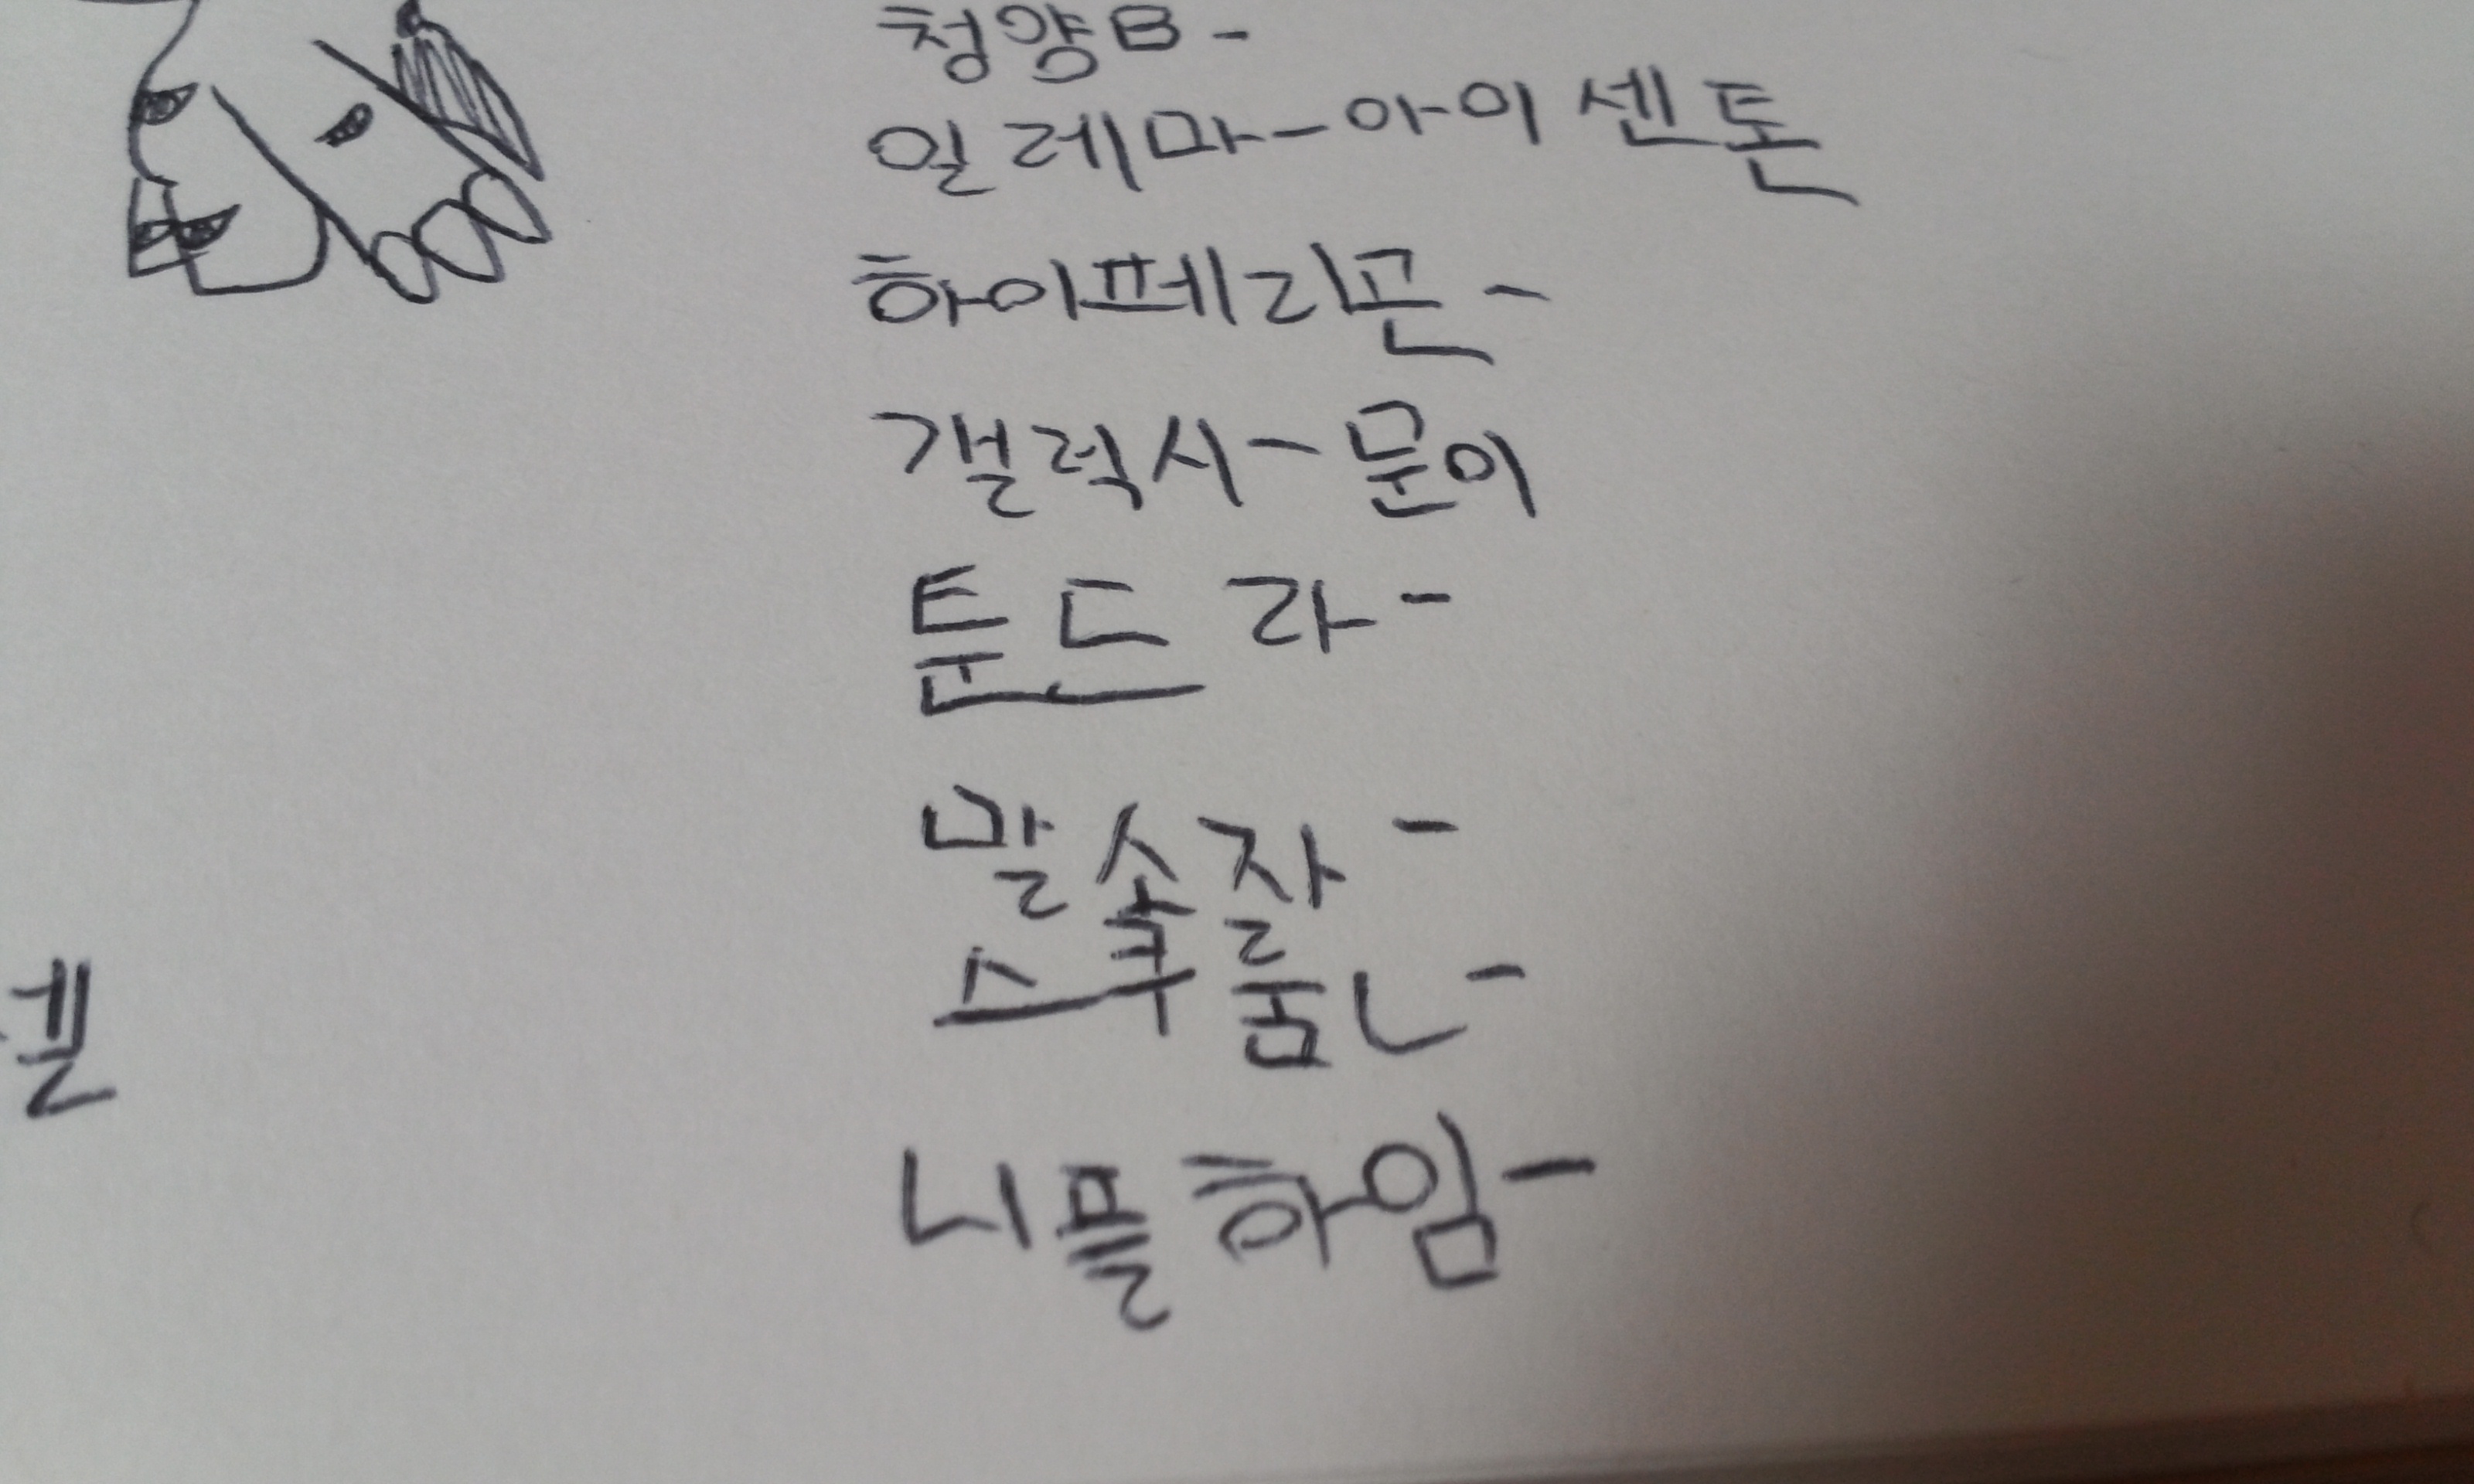 청양B-
일레마-아이센톤
하이페리곤-
갤럭시-문이
툰드라-
말소잘-
스쿠훔ㄴ-
니플하임-